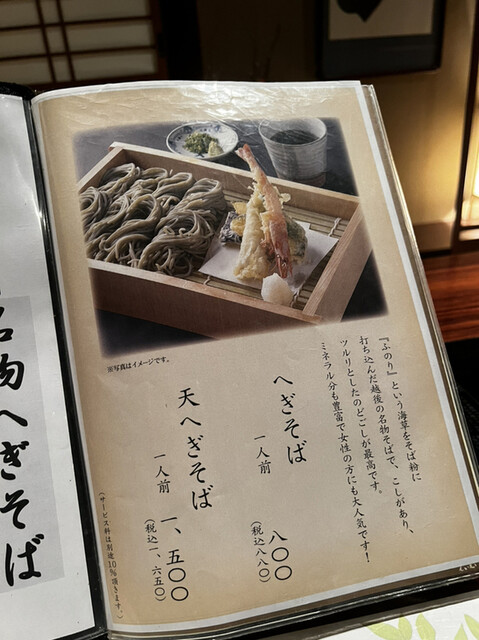 ※写真はイメージです。
『ふのり』という海草をそば粉に
打ち込んだ越後の名物そばで、こしがあり、
ツルリとしたのどごしが最高です。
ミネラル分も豊富で女性の方にも大人気です！
へぎそば
一人前
八〇〇
(税込八八〇)
天へぎそば
一人前
一、五〇〇
(税込一、六五〇)
(サービス料は別途10％頂きます。)
名物へぎそば